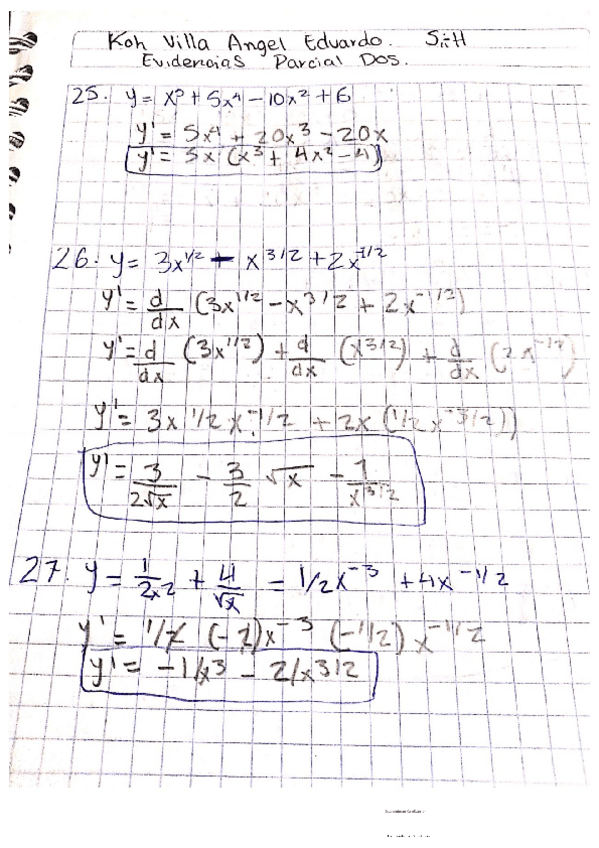 Koh Villa Angel Eduardo. 5°H
Evidencias Parcial Dos.
25. y = x⁵ + 5x⁴ - 10x² + 6
y' = 5x⁴ + 20x³ - 20x
y' = 5x (x³ + 4x² - 4)
26. y = 3x^1/2 - x^3/2 + 2x^-1/2
y' = d/dx (3x^1/2 - x^3/2 + 2x^-1/2)
y' = d/dx (3x^1/2) + d/dx (x^3/2) + d/dx (2x^-1/2)
y' = 3x 1/2 x^-1/2 + 2x (1/2 x^-3/2))
y' = 3/2√x - 3/2 √x - 1/x^3/2
27. y = 1/2x² + 4/√x = 1/2x^-3 + 4x^-1/2
y' = 1/2 (-2)x^-3 (-1/2) x^-1/2
y' = -1/x³ - 2/x^3/2